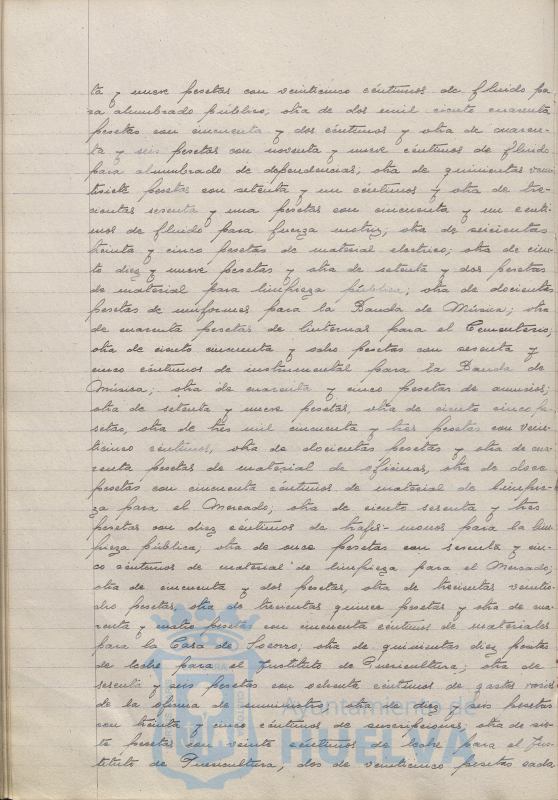 ta y nueve pesetas con veinticinco céntimos de fluido pa-
ra alumbrado público; otra de dos mil ciento cuarenta
pesetas con cincuenta y dos céntimos y otra de cuaren-
ta y seis pesetas con noventa y nueve céntimos de fluido
para alumbrado de dependencias; otra de quinientas vein-
tisiete pesetas con setenta y un céntimos y otra de tres-
cientas sesenta y una pesetas con cincuenta y un cénti-
mos de fluido para fuerza motriz; otra de seiscientas
treinta y cinco pesetas de material electrico; otra de cien-
to diez y nueve pesetas y otra de setenta y dos pesetas
de material para limpieza pública; otra de doscientas
pesetas de uniformes para la Banda de Música; otra
de cuarenta pesetas de linternas para el Cementerio;
otra de ciento cincuenta y ocho pesetas con sesenta y
cinco céntimos de instrumental para la Banda de
Música; otra de cuarenta y cinco pesetas de anuncios;
otra de setenta y nueve pesetas, otra de ciento cinco pe-
setas, otra de tres mil cincuenta y tres pesetas con vein-
ticinco céntimos, otra de doscientas pesetas y otra de cua-
renta pesetas de material de oficinas, otra de doce
pesetas con cincuenta céntimos de material de limpie-
za para el Mercado; otra de ciento sesenta y tres
pesetas con diez céntimos de trafis-monos para la lim-
pieza pública; otra de once pesetas con sesenta y cin-
co céntimos de material de limpieza para el Mercado;
otra de cincuenta y dos pesetas, otra de trescientas veintio-
cho pesetas, otra de trescientas quince pesetas y otra de cua-
renta y cuatro pesetas con cincuenta céntimos de materiales
para la Casa de Socorro; otra de quinientas diez pesetas
de leche para el Instituto de Puericultura; otra de
sesenta y seis pesetas con ochenta céntimos de gastos varios
de la oficina de suministro; otra de diez y seis pesetas
con treinta y cinco céntimos de suscripciones, otra de sie-
te pesetas con veinte céntimos de leche para el Ins-
tituto de Puericultura, dos de veinticinco pesetas cada
Ayuntamiento de
HUELVA